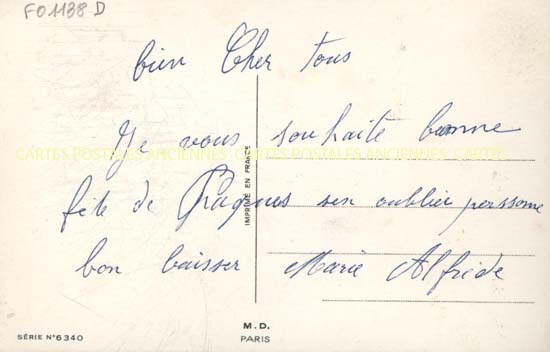 FO1138 D
bien Cher tous
Je vous souhaite bonne
CARTES POSTALES ANCIENNES CARTES POSTALES ANCIENNES CARTES
fête de Paques sen oublier perssonne
bon baisser Marie Alfrède
IMPRIMÉ EN FRANCE
SÉRIE N° 6340
M.D.
PARIS